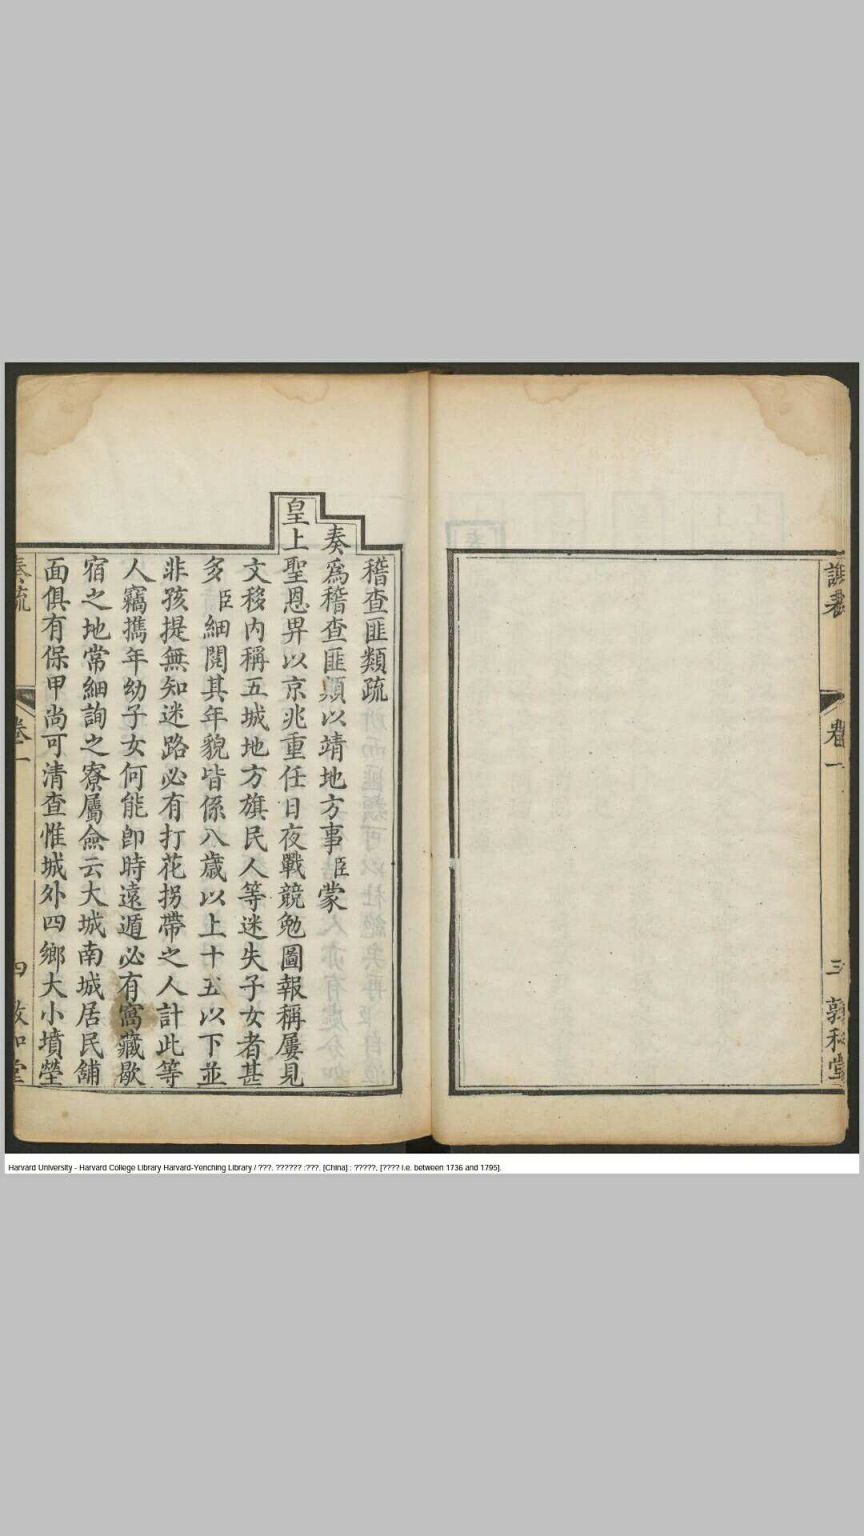 卷一
三
稽查匪類疏
奏爲稽查匪類以靖地方事臣蒙
皇上聖恩畀以京兆重任日夜戰競勉圖報稱屢見
文移内稱五城地方旗民人等迷失子女者甚
多臣細閱其年貌皆係八歲以上十五以下並
非孩提無知迷路必有打花拐帶之人計此等
人竊攜年幼子女何能卽時遠遁必有窩藏歇
宿之地常細詢之寮屬僉云大城南城居民舖
面俱有保甲尚可清查惟城外四鄉大小墳塋
奏疏
卷一
四
Harvard University - Harvard College Library Harvard-Yenching Library / ???. ?????? :???. [China] : ?????, [???? i.e. between 1736 and 1795].